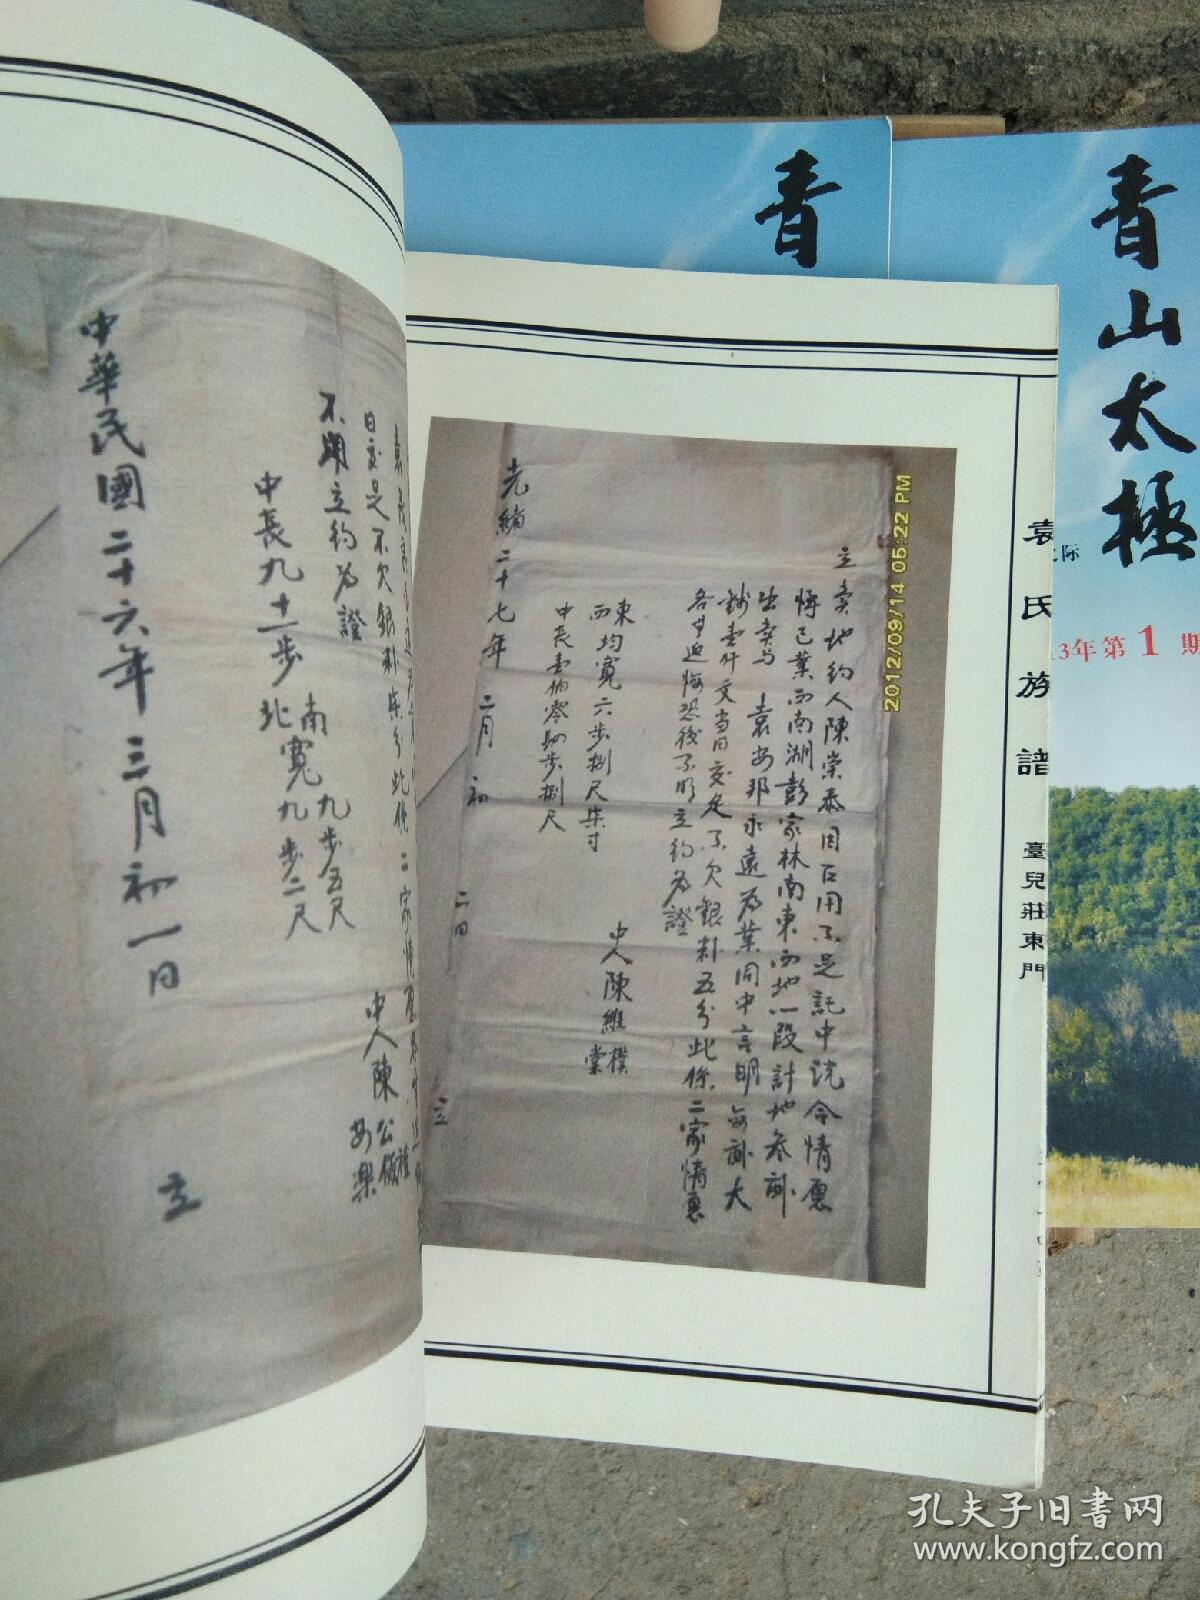 青
青山太極
之际
13年第1期
袁氏族譜
臺兒莊東門
2012/09/14 05:22 PM
立賣地約人陳崇泰因乏用不足託中說合情愿
將己業西南湖彭家林南東西地一段計地叁畝
出賣与 袁安邦永遠為業同中言明每畝大
錢壹仟文當日交足不欠銀料五分此係二家情愿
各無追悔恐後不明立約為證
東西均寬六步捌尺柒寸
中長壹佰零四步捌尺
中人陳維樸棠
光緒二十七年 二月 初 二日 立
日交足不欠銀料柒分此係二家情愿
不明立約為證
中長九十一步 南寬九步五尺
北寬九步二尺
中人陳公
安樂
中華民國二十六年三月初一日 立
孔夫子旧书网
www.kongfz.com